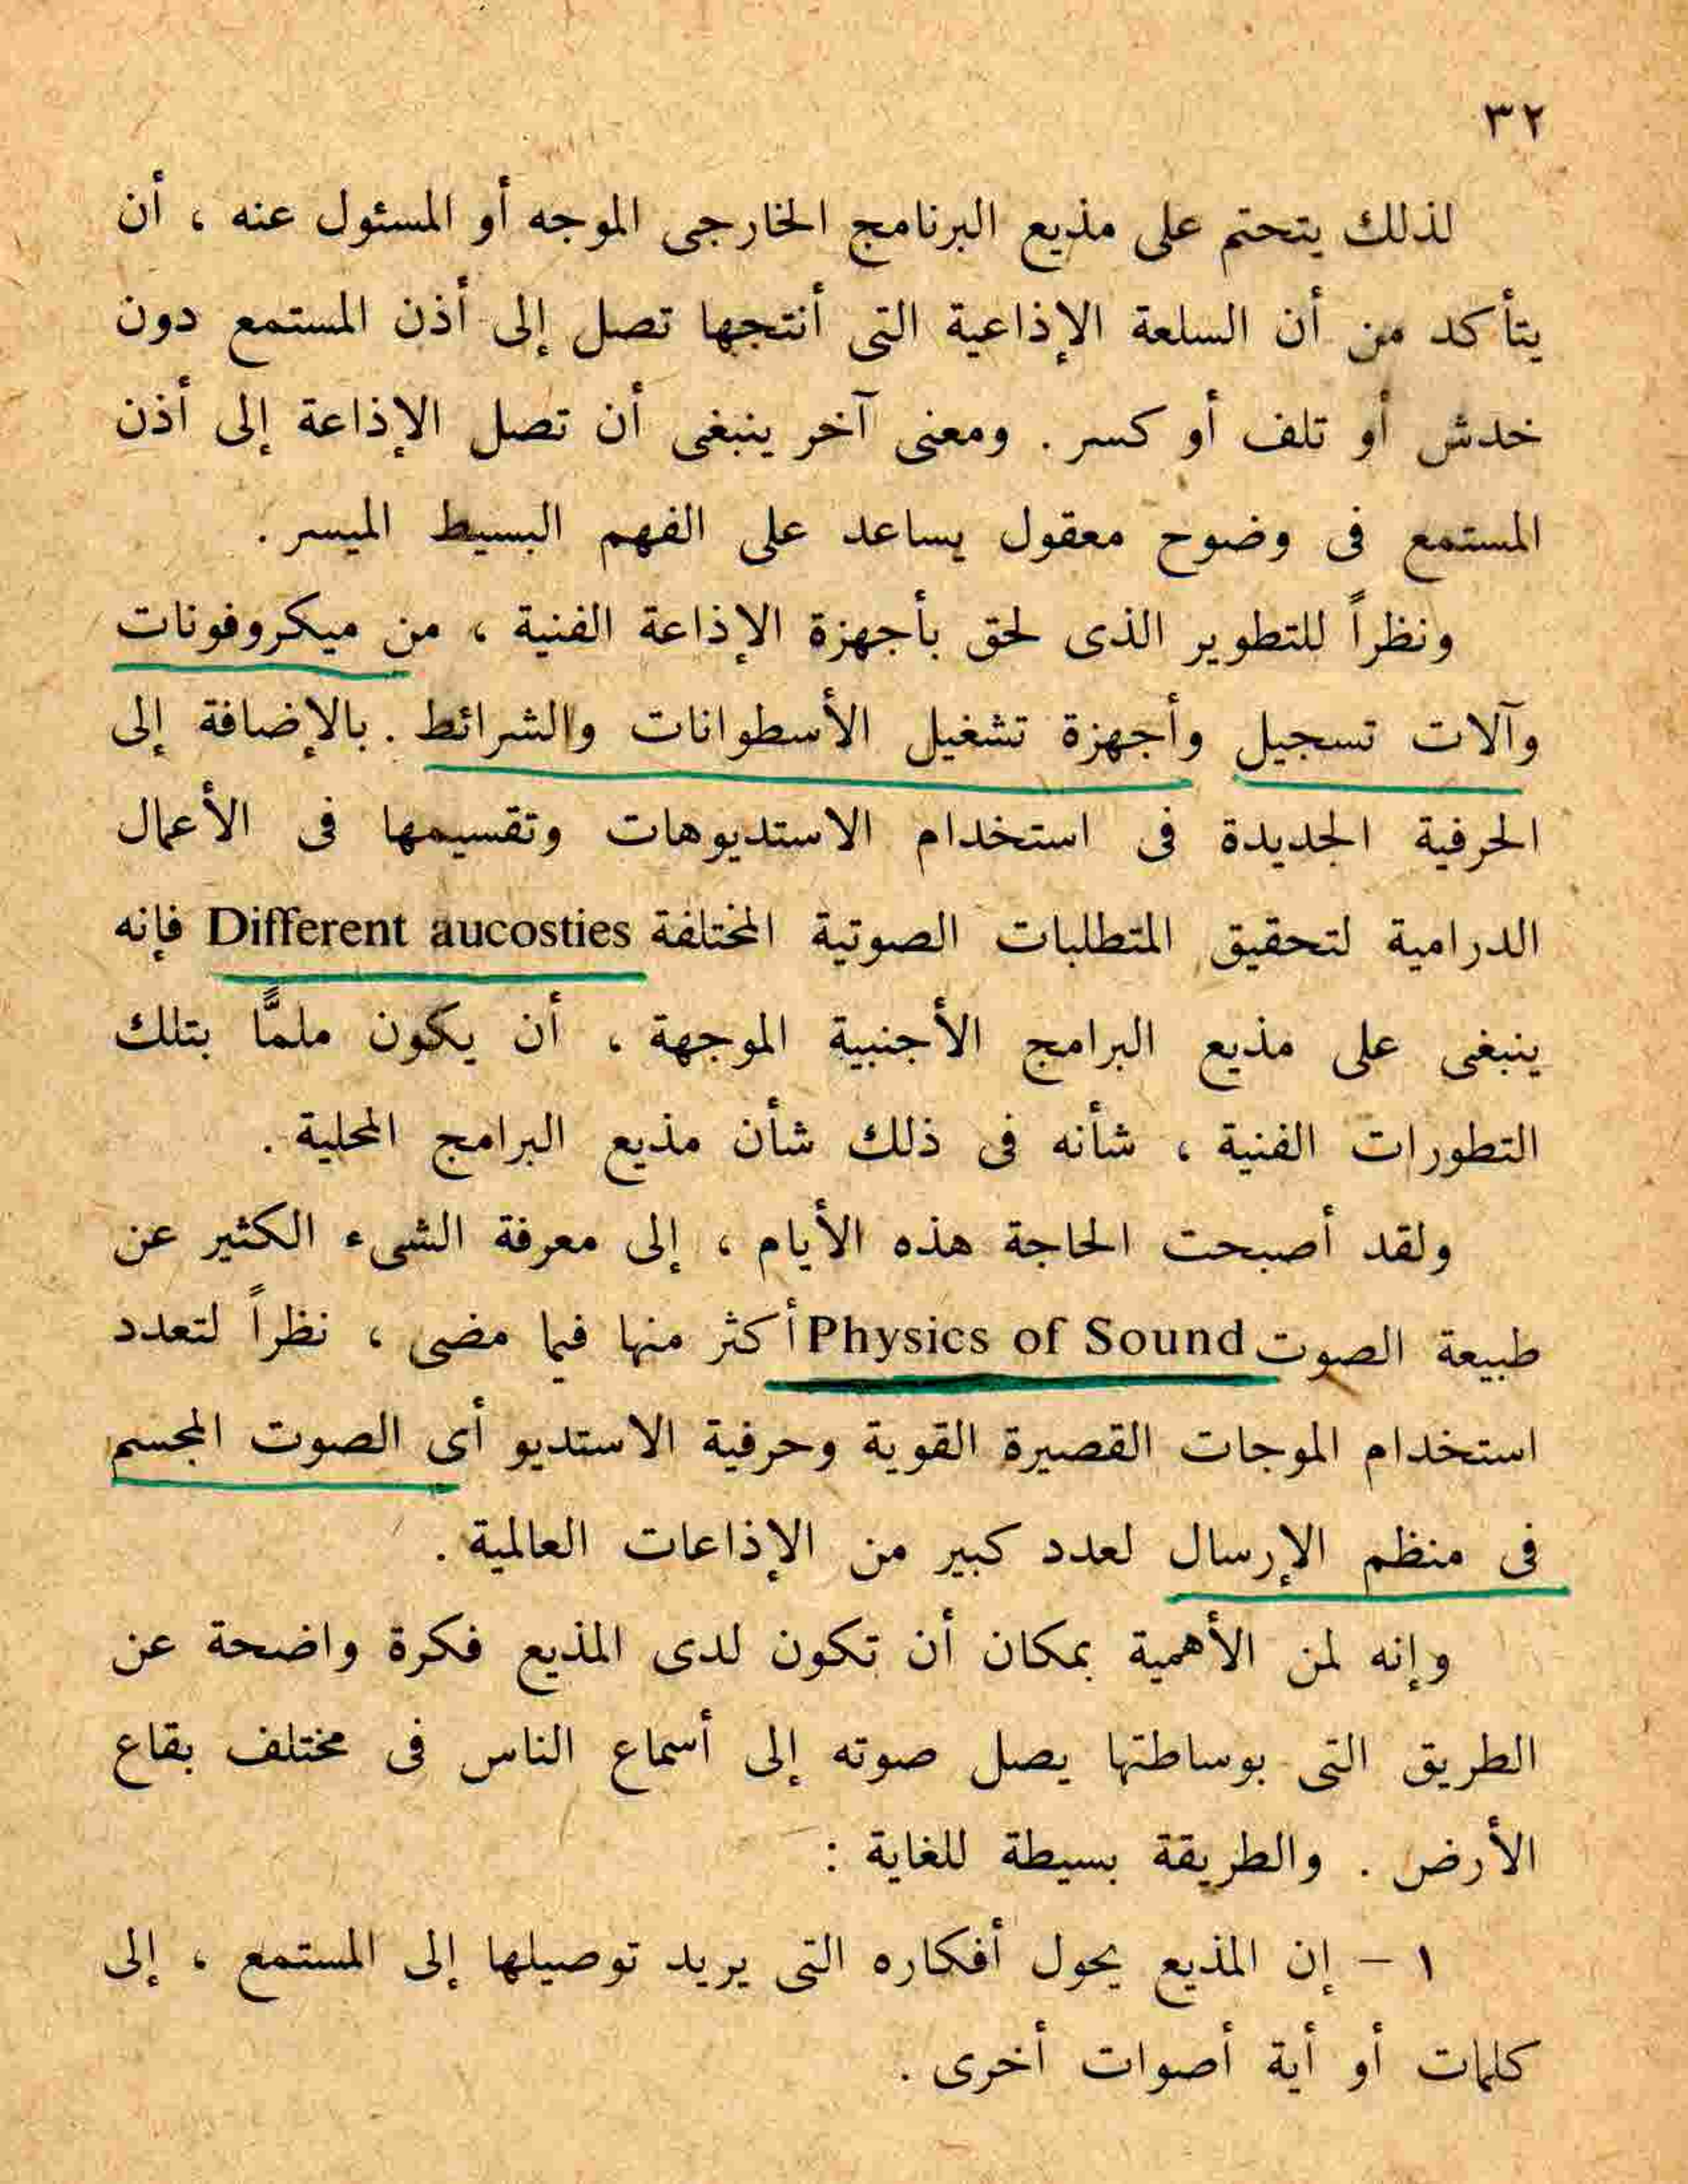 ٣٢
لذلك يتحتم على مذيع البرنامج الخارجى الموجه أو المسئول عنه ، أن
يتأكد من أن السلعة الإذاعية التى أنتجها تصل إلى أذن المستمع دون
خدش أو تلف أو كسر . ومعنى آخر ينبغى أن تصل الإذاعة إلى أذن
المستمع فى وضوح معقول يساعد على الفهم البسيط الميسر .
ونظراً للتطوير الذى لحق بأجهزة الإذاعة الفنية ، من ميكروفونات
وآلات تسجيل وأجهزة تشغيل الأسطوانات والشرائط . بالإضافة إلى
الحرفية الجديدة فى استخدام الاستديوهات وتقسيمها فى الأعمال
الدرامية لتحقيق المتطلبات الصوتية المختلفة Different aucosties فإنه
ينبغى على مذيع البرامج الأجنبية الموجهة ، أن يكون ملمًّا بتلك
التطورات الفنية ، شأنه فى ذلك شأن مذيع البرامج المحلية .
ولقد أصبحت الحاجة هذه الأيام ، إلى معرفة الشىء الكثير عن
طبيعة الصوت Physics of Sound أكثر منها فيما مضى ، نظراً لتعدد
استخدام الموجات القصيرة القوية وحرفية الاستديو أى الصوت المجسم
فى منظم الإرسال لعدد كبير من الإذاعات العالمية .
وإنه لمن الأهمية بمكان أن تكون لدى المذيع فكرة واضحة عن
الطريق التى بوساطتها يصل صوته إلى أسماع الناس فى مختلف بقاع
الأرض . والطريقة بسيطة للغاية :
١ – إن المذيع يحول أفكاره التى يريد توصيلها إلى المستمع ، إلى
كلمات أو أية أصوات أخرى .